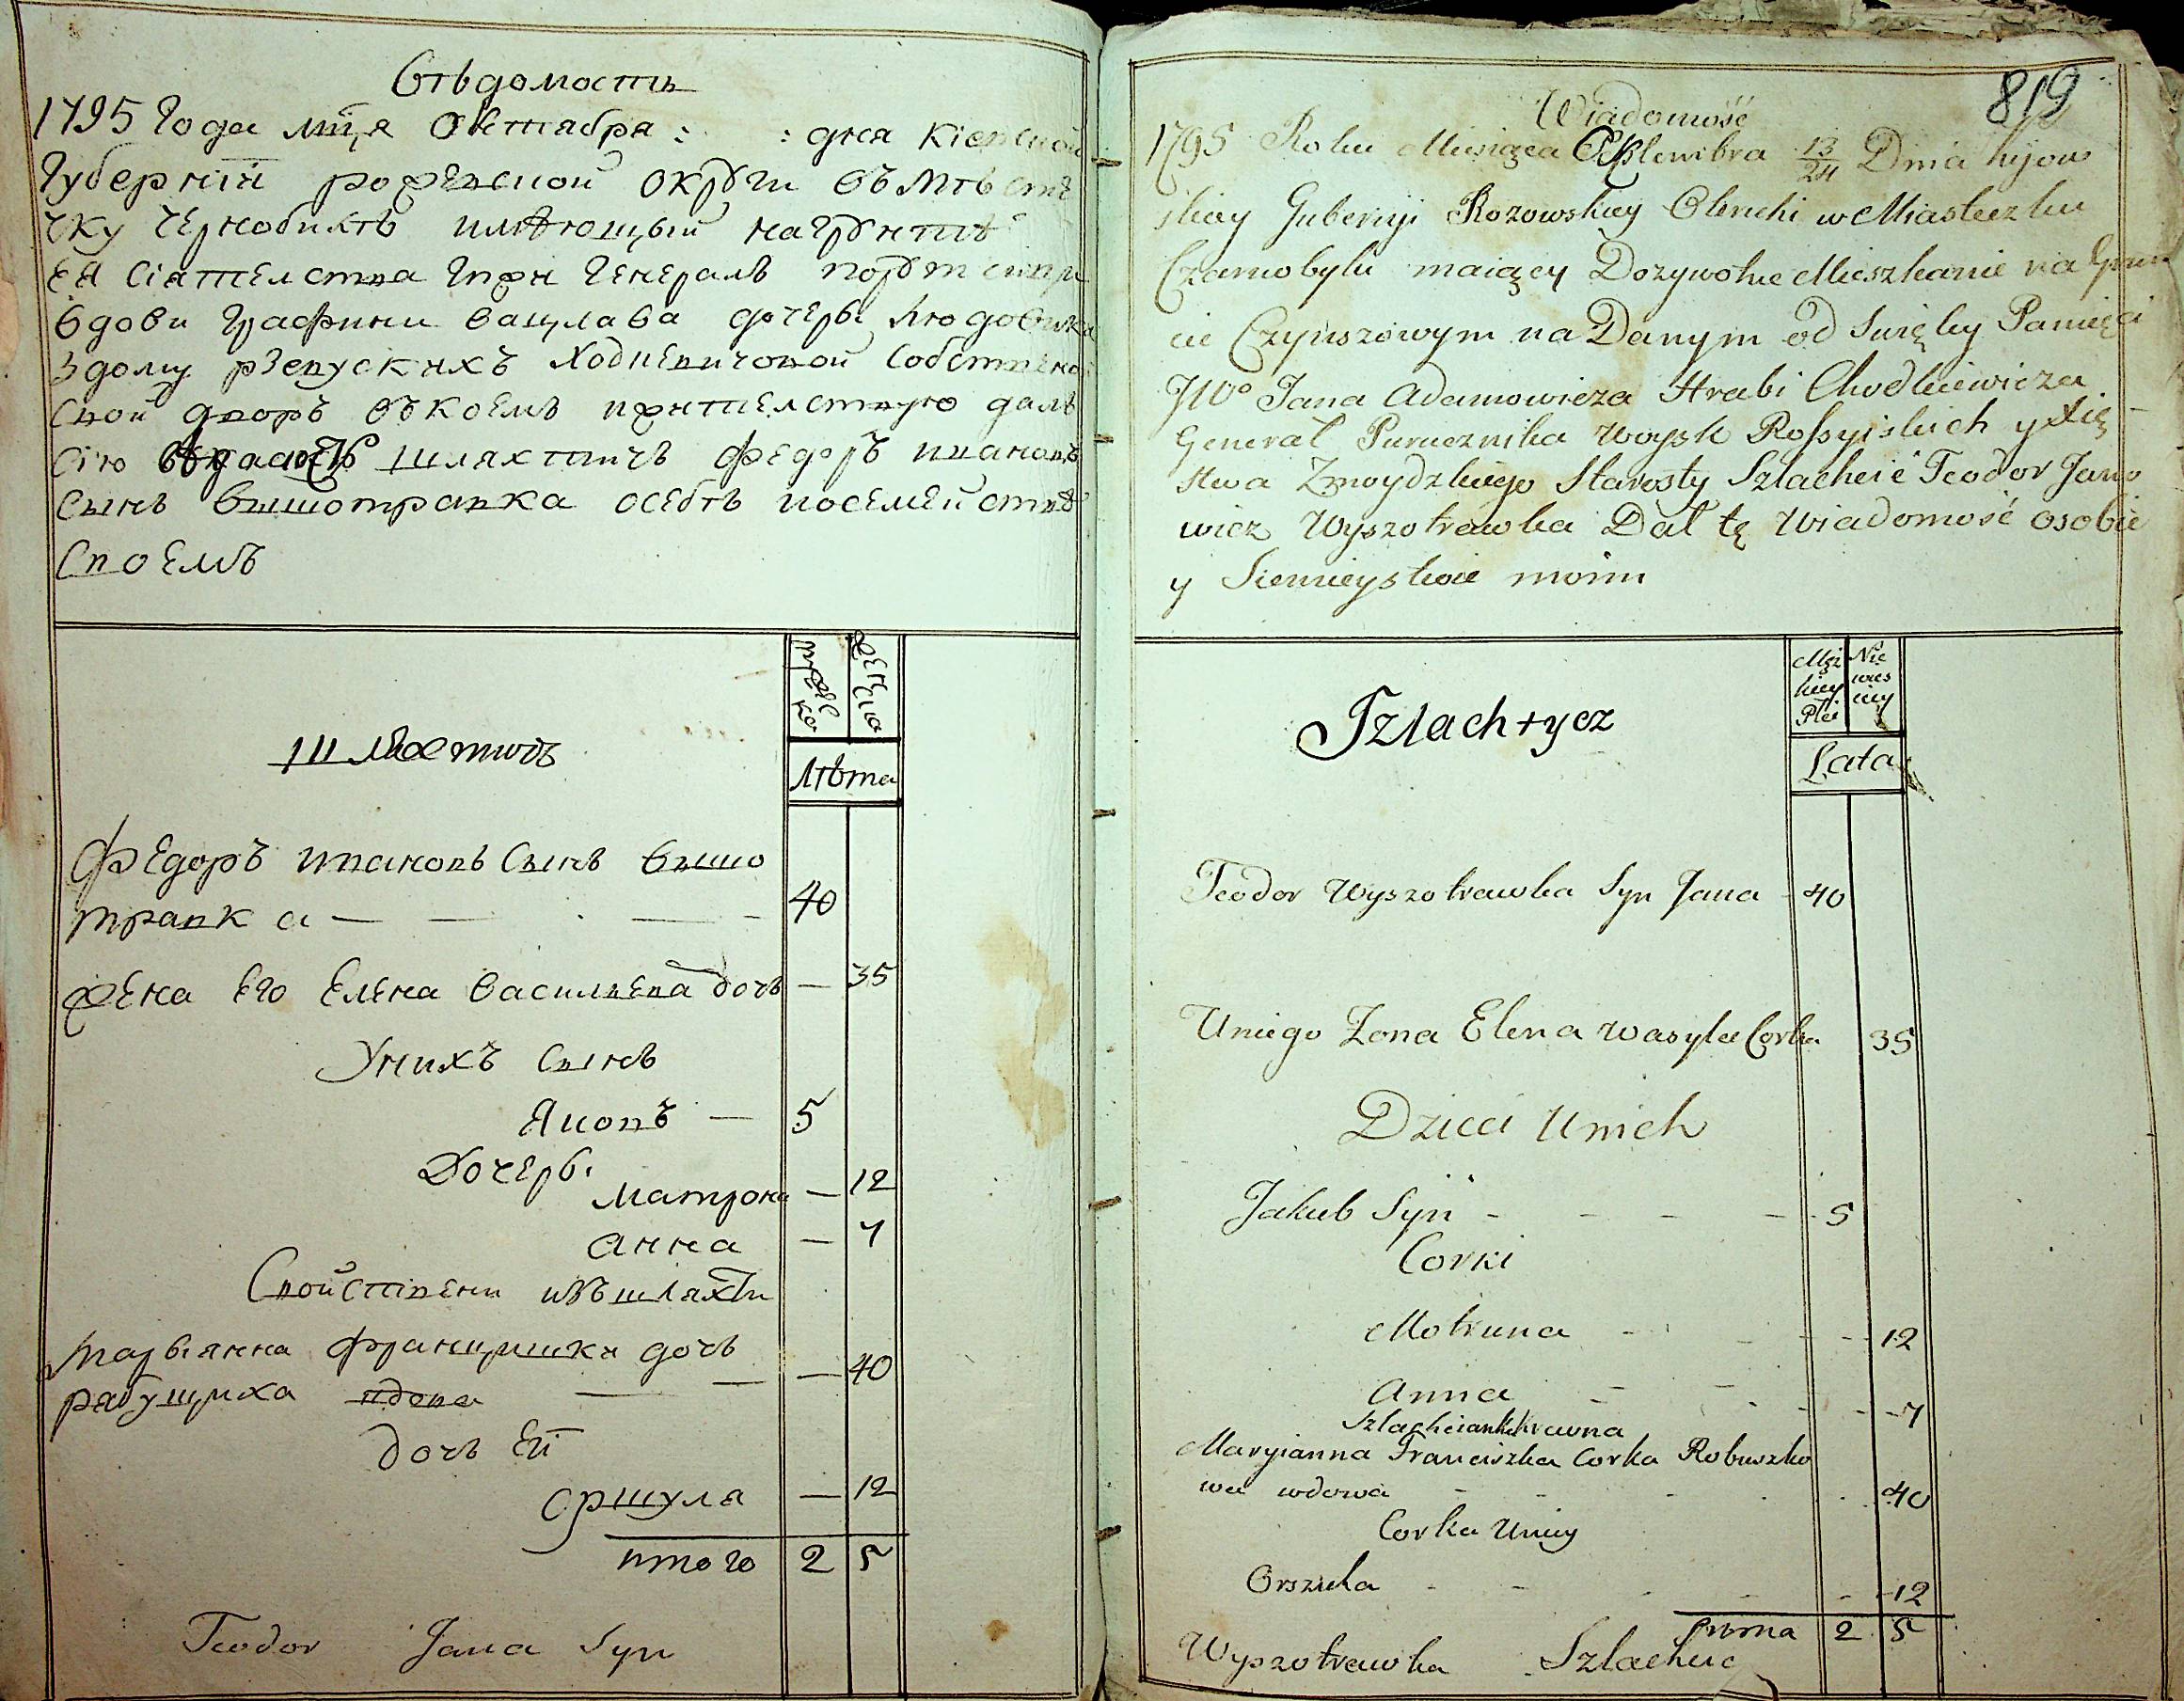 Вѣдомость
1795 Года мц҃я Октября : : дня Кіевской
Губерніи рожевской округи въ мѣсте
чку чернобилѣ имѣющый на грунтѣ
ея Сіятелства Гпжи Генералъ порутчици
вдови Графини вацлава дочеры Людовики
з дому рзевускихъ Ходкевичовой Собственой
свой дворъ въ коемъ жителствую далъ
сію шляхтичъ федоръ ивановъ
сынъ вышотравка осебѣ и о семействѣ
своемъ
шляхтичъ
мужеска
женска
Лѣта
Федоръ ивановъ Сынъ вышо
травка — — — 40
жена его Елена василиева дочь — 35
У нихъ сынъ
Яковъ — 5
Дочеры
матрона — 12
анна — 7
Свойствени изъ шляхти
марьянна францишки дочь
рабущиха вдова — — — 40
дочь ей
оршуля — 12
итого 2 5
Teodor Jana Syn
819
Wiadomość
1795 Roku Miesiąca Oktembra 13/24 Dnia kijow
skiey Gubernyi Rozowskiey Okruhi w Miasteczku
Czarnobylu maiący Dozywotne Mieszkanie na Grun
cie Czynszowym na Danym od Swięty Pamięci
JWo Jana Adamowicza Hrabi Chodkiewicza
General Porucznika woysk Rossyiskich y Xię
stwa Zmoydzkiego Starosty Szlachcic Teodor Jano
wicz Wyszotrawka Dał tę wiadomość osobie
y Siemieystwie moim
Szlachtycz
Męz
kiey
Płci
Nie
wies
ciey
Lata
Teodor Wyszotrawka Syn Jana - 40
Uniego Zona Elena Wasyla Corka 35
Dzieci Unich
Jakub Syn - - - - 5
Corki
Motruna - - - - 12
Anna - - - - 7
Szlachcianka krewna
Maryianna Franciszka Corka Robuszko
wa wdowa - - - 40
Corka Uniey
Orszula - - - - 12
Suma 2 5
Wyszotrawka Szlachcic